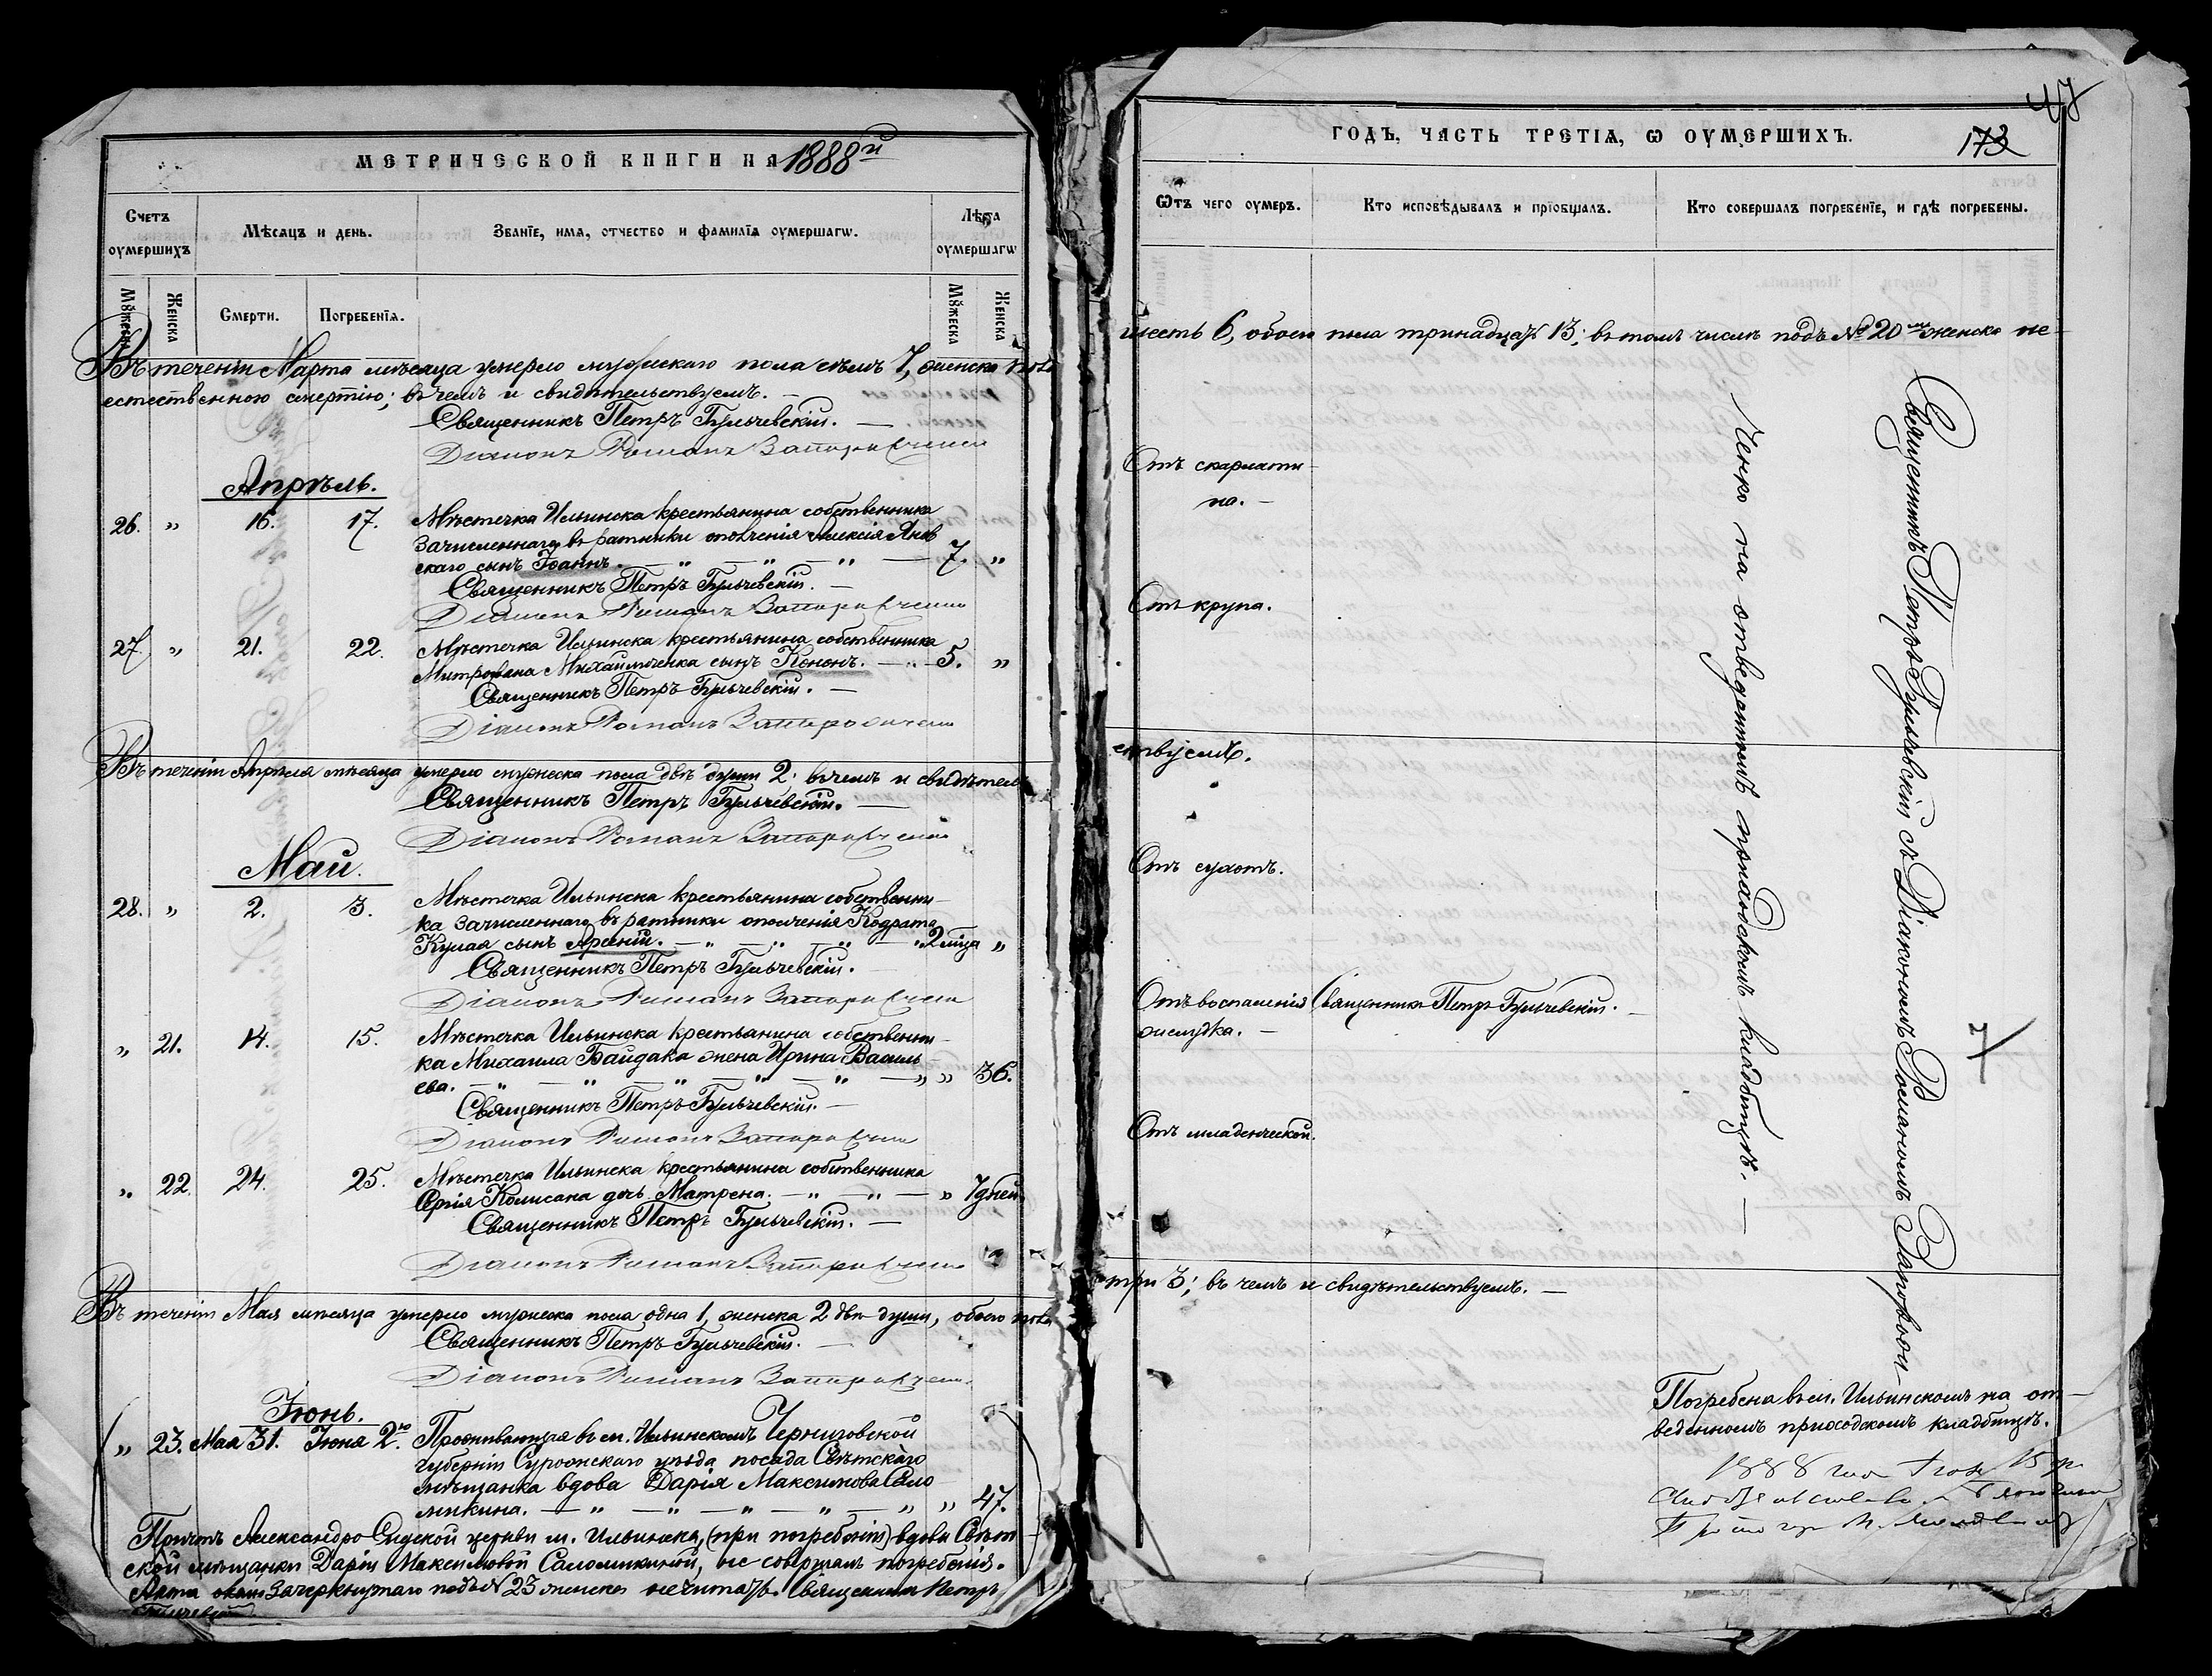 МЕТРИЧЕСКОЙ КНИГИ НА 1888й
Счетъ оумершихъ
Мѣсяцъ и день.
Званіе, имя, отчество и фамилія оумершагѡ.
Лѣта оумершагѡ
Мꙋжеска
Женска
Смерти.
Погребенія.
Мꙋжеска
Женска
Въ теченіи Марта мѣсяца умерло мужескаго пола семь 7, женска пола
естественною смертію; въ чемъ и свидѣтельствуемъ. —
Священникъ Петръ
Діаконъ Романъ
Апрѣль.
26. „ 16. 17. Мѣстечка Ильинска крестьянина собственника
зачисленнаго въ ратники ополченія Алексія Янов
скаго сынъ Іоаннъ. — „ — „ — „ — 7. „
Священникъ Петръ
Діаконъ Романъ
27. „ 21. 22. Мѣстечка Ильинска крестьянина собственника
Митрофана Михайличенка сынъ Кононъ. — „ — 5. „
Священникъ Петръ
Діаконъ Романъ
Въ теченіи Апрѣля мѣсяца умерло мужеска пола двѣ души 2. въ чемъ и свидѣтель
Священникъ Петръ
Діаконъ Романъ
Май.
28. „ 2. 3. Мѣстечка Ильинска крестьянина собственни-
ка зачисленнаго въ ратники ополченія Кодрата
сынъ Арсеній. — „ — „ — „ — „ 2 мѣца „
Священникъ Петръ
Діаконъ Романъ
„ 21. 14. 15. Мѣстечка Ильинска крестьянина собственни-
ка Михаила Байдака жена Ирина Василь
ева. — „ — „ — „ — „ — „ — „ „ 36.
Священникъ Петръ
Діаконъ Романъ
„ 22. 24. 25. Мѣстечка Ильинска крестьянина собственника
Сергія дочь Матрена. — „ — „ — „ 7 дней
Священникъ Петръ
Діаконъ Романъ
Въ теченіи Мая мѣсяца умерло мужеска пола одна 1, женска 2 двѣ души, обоего пола
Священникъ Петръ
Діаконъ Романъ
Іюнь.
„ 23. Мая 31. Іюня 2го. Проживающая въ м. Ильинскомъ Черниговской
губерніи Суражскаго уѣзда посада Свѣтскаго
мѣщанка вдова Дарія Максимова Сало
микина. — „ — „ — „ — „ — „ „ 47.
Причтъ Александро церкви м. Ильинска, (при погребеніи) вдовы Свѣт
ской мѣщанки Даріи Максимовой Саломикиной, не совершалъ погребенія.
Акта зачеркнутаго подъ № 23 женска не читать. Священникъ Петръ
ГОДЪ, ЧАСТЬ ТРЕТІЯ, Ѡ ОУМЕРШИХЪ.
173
Ѿтъ чего оумеръ.
Кто исповѣдывалъ и пріобщалъ.
Кто совершалъ погребеніе, и гдѣ погребены.
шесть 6, обоего пола тринадцать 13; въ томъ числѣ подъ № 20мъ женска не-
Отъ скарлати-
на. —
Отъ крупа.
ствуемъ.
Отъ сухотъ.
Отъ воспаленія Священникъ Петръ
желудка. —
Отъ младенческой.
Священникъ Петръ съ Діакономъ Романомъ
на отведенномъ приходскомъ кладбищѣ. —
три 3; въ чемъ и свидѣтельствуемъ. —
Погребена въ м. Ильинскомъ на от-
веденномъ приходскомъ кладбищѣ.
1888 года